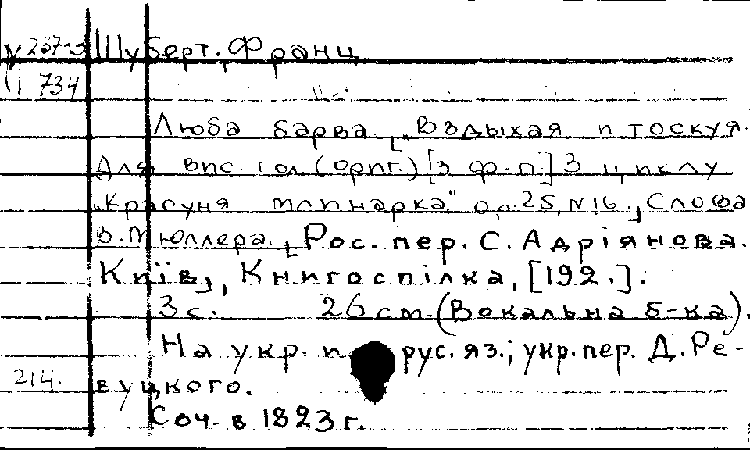 У 237-3 Шуберт, Франц
734
Люба барва. „Вздыхая и тоскуя.
Для вис. гол. (ориг.) [з ф-п.] З циклу
„Красуня млинарка" ор. 25, N 16. Слова
В. Мюллера. Рос. пер. С. Адріянова.
Київ, Книгоспілка, [192.].
3 с. 26 см (Вокальна б-ка).
На укр. и рус. яз.; укр. пер. Д. Ре-
214. вуцкого.
Соч. в 1823 г.